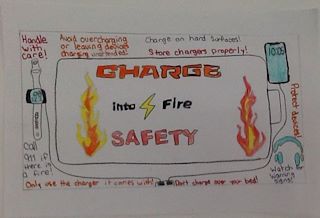 Handle
with
care!
Avoid overcharging
or leaving devices
charging unattended!
Charge on hard surfaces!
Store chargers properly!
10:05
CHARGE
into Fire
SAFETY
Protect devices!
Call
911 if
there is
a fire!
Watch for
warning
signs!
Only use the charger it comes with!
Don't charge over your bed!